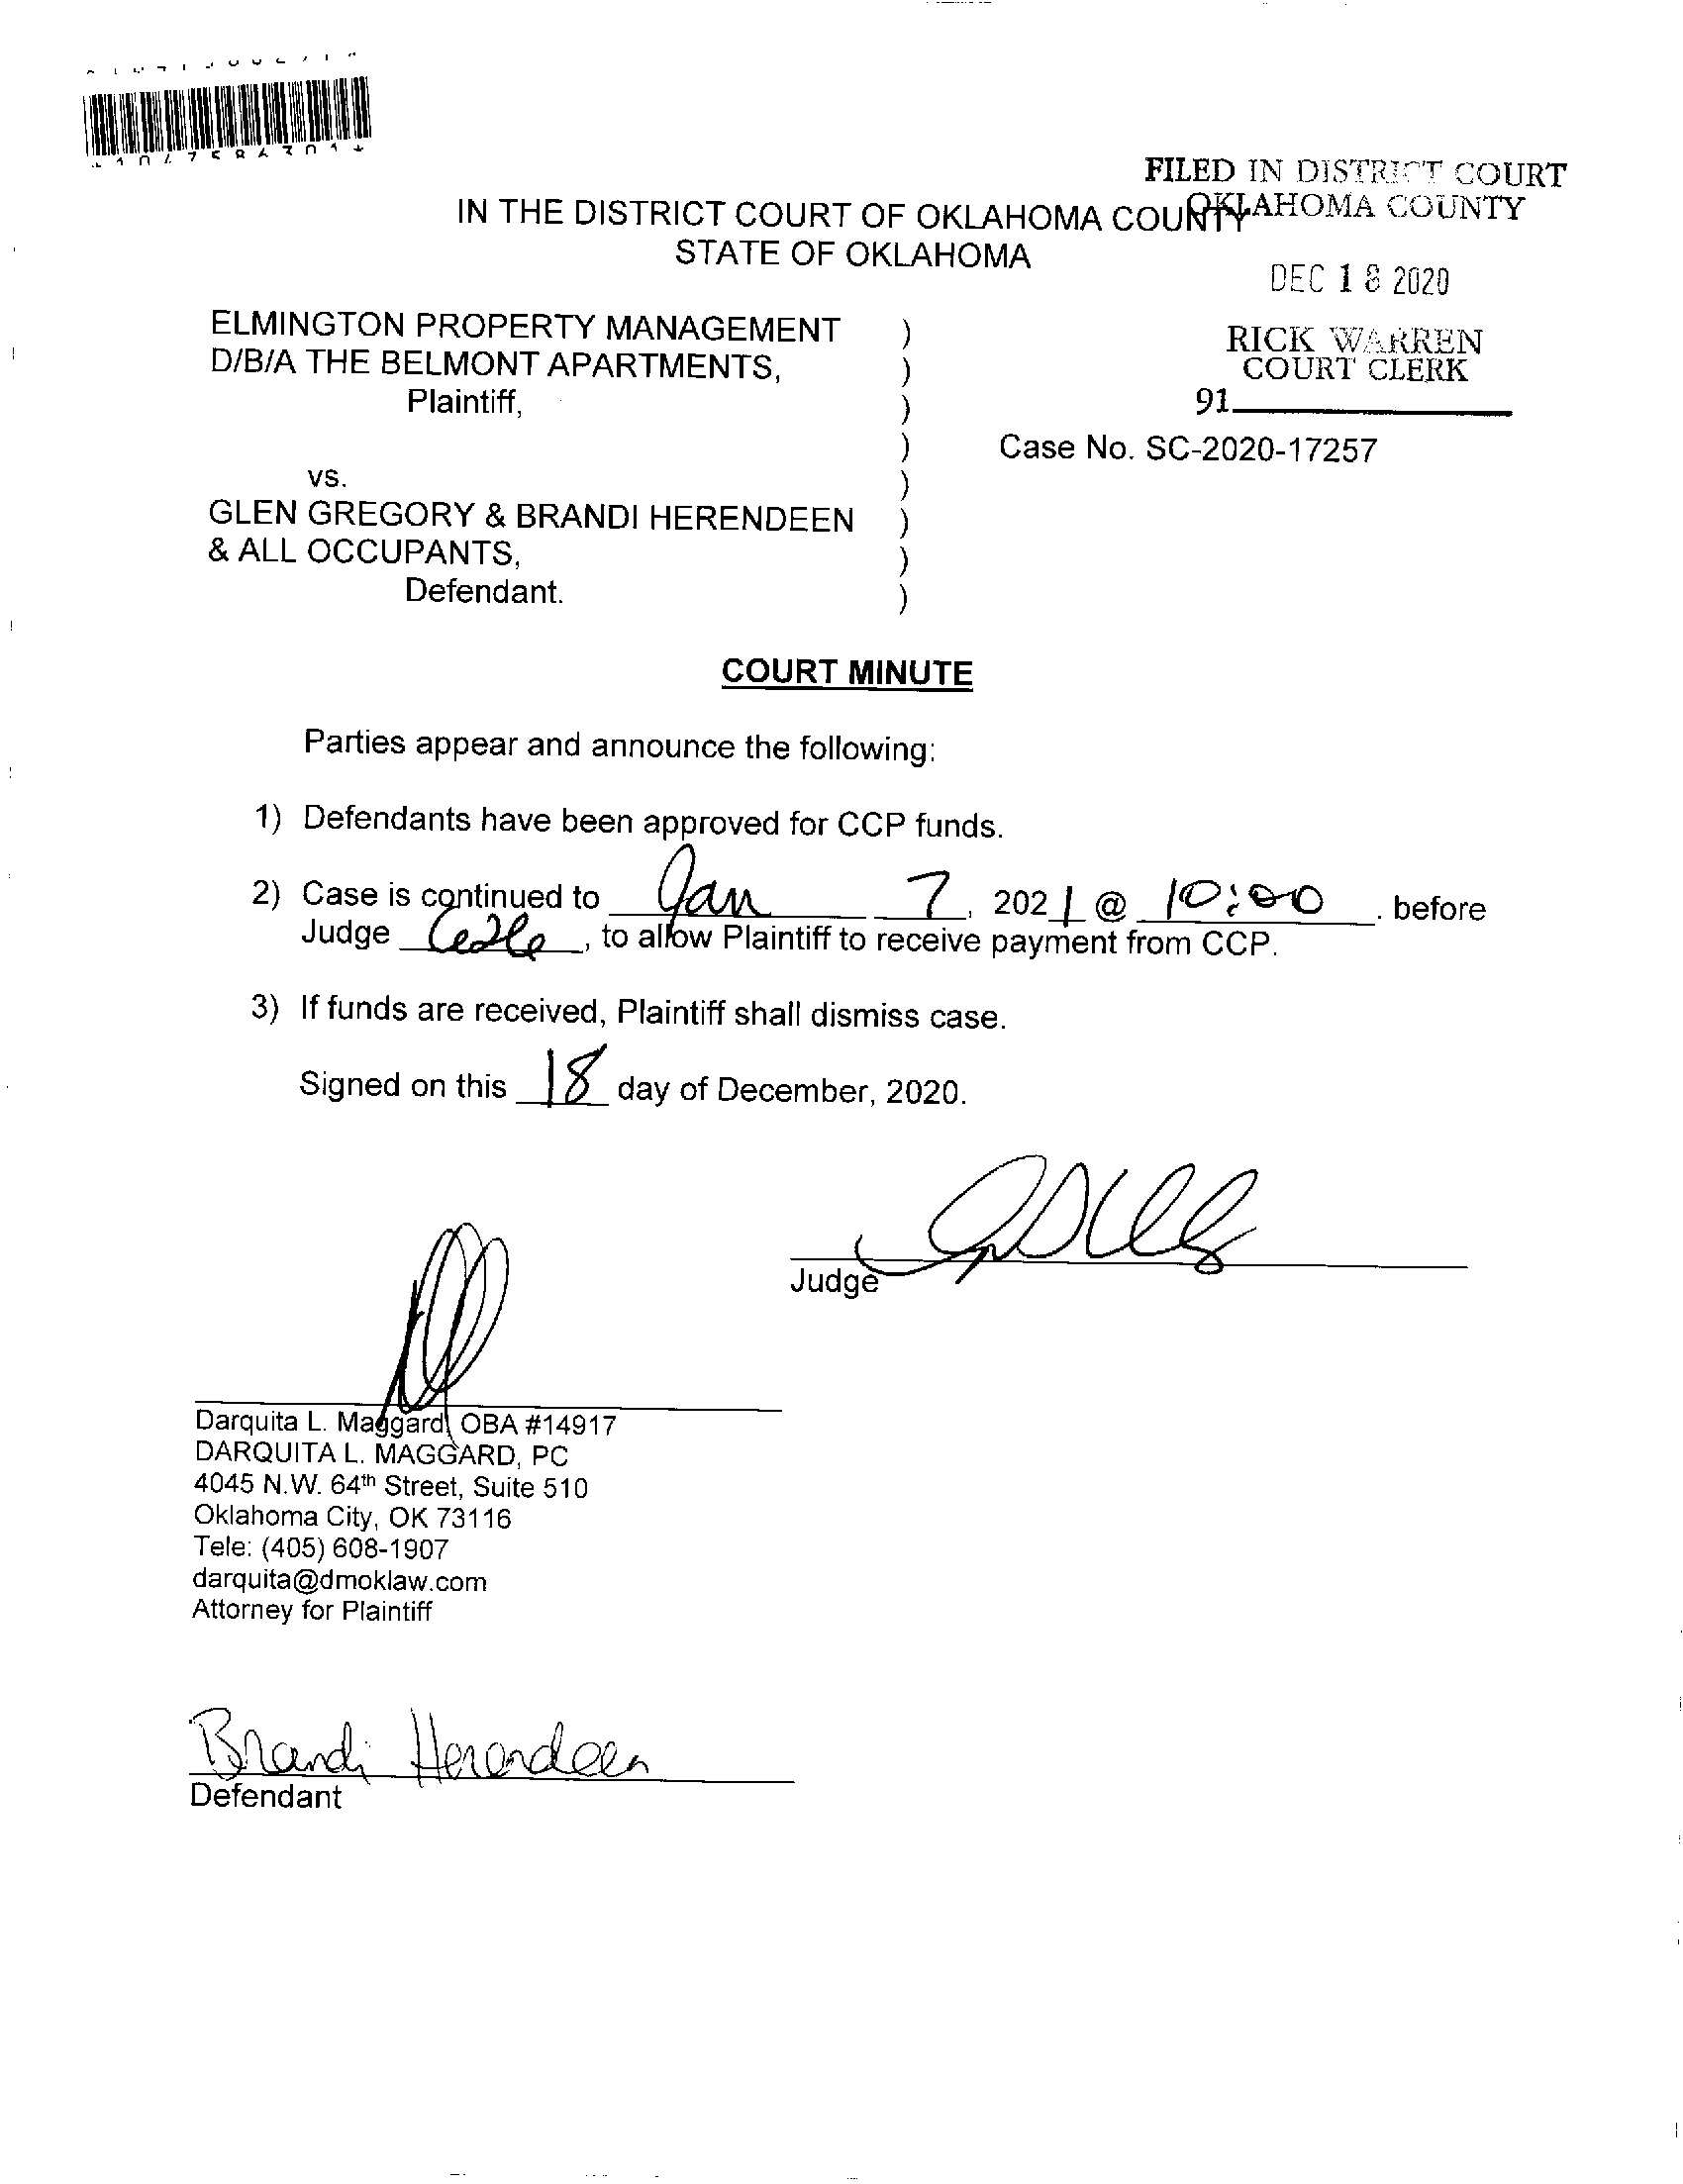 FILED IN DISTRICT COURT
OKLAHOMA COUNTY
IN THE DISTRICT COURT OF OKLAHOMA COUNTY
STATE OF OKLAHOMA
DEC 18 2020
RICK WARREN
COURT CLERK
91
ELMINGTON PROPERTY MANAGEMENT )
D/B/A THE BELMONT APARTMENTS, )
Plaintiff, )
) Case No. SC-2020-17257
vs. )
GLEN GREGORY & BRANDI HERENDEEN )
& ALL OCCUPANTS, )
Defendant. )
COURT MINUTE
Parties appear and announce the following:
1) Defendants have been approved for CCP funds.
2) Case is continued to Jan 7, 2021 @ 10:00. before
Judge , to allow Plaintiff to receive payment from CCP.
3) If funds are received, Plaintiff shall dismiss case.
Signed on this 18 day of December, 2020.
Judge
Darquita L. Maggard OBA #14917
DARQUITA L. MAGGARD, PC
4045 N.W. 64th Street, Suite 510
Oklahoma City, OK 73116
Tele: (405) 608-1907
darquita@dmoklaw.com
Attorney for Plaintiff
Brandi Herendeen
Defendant